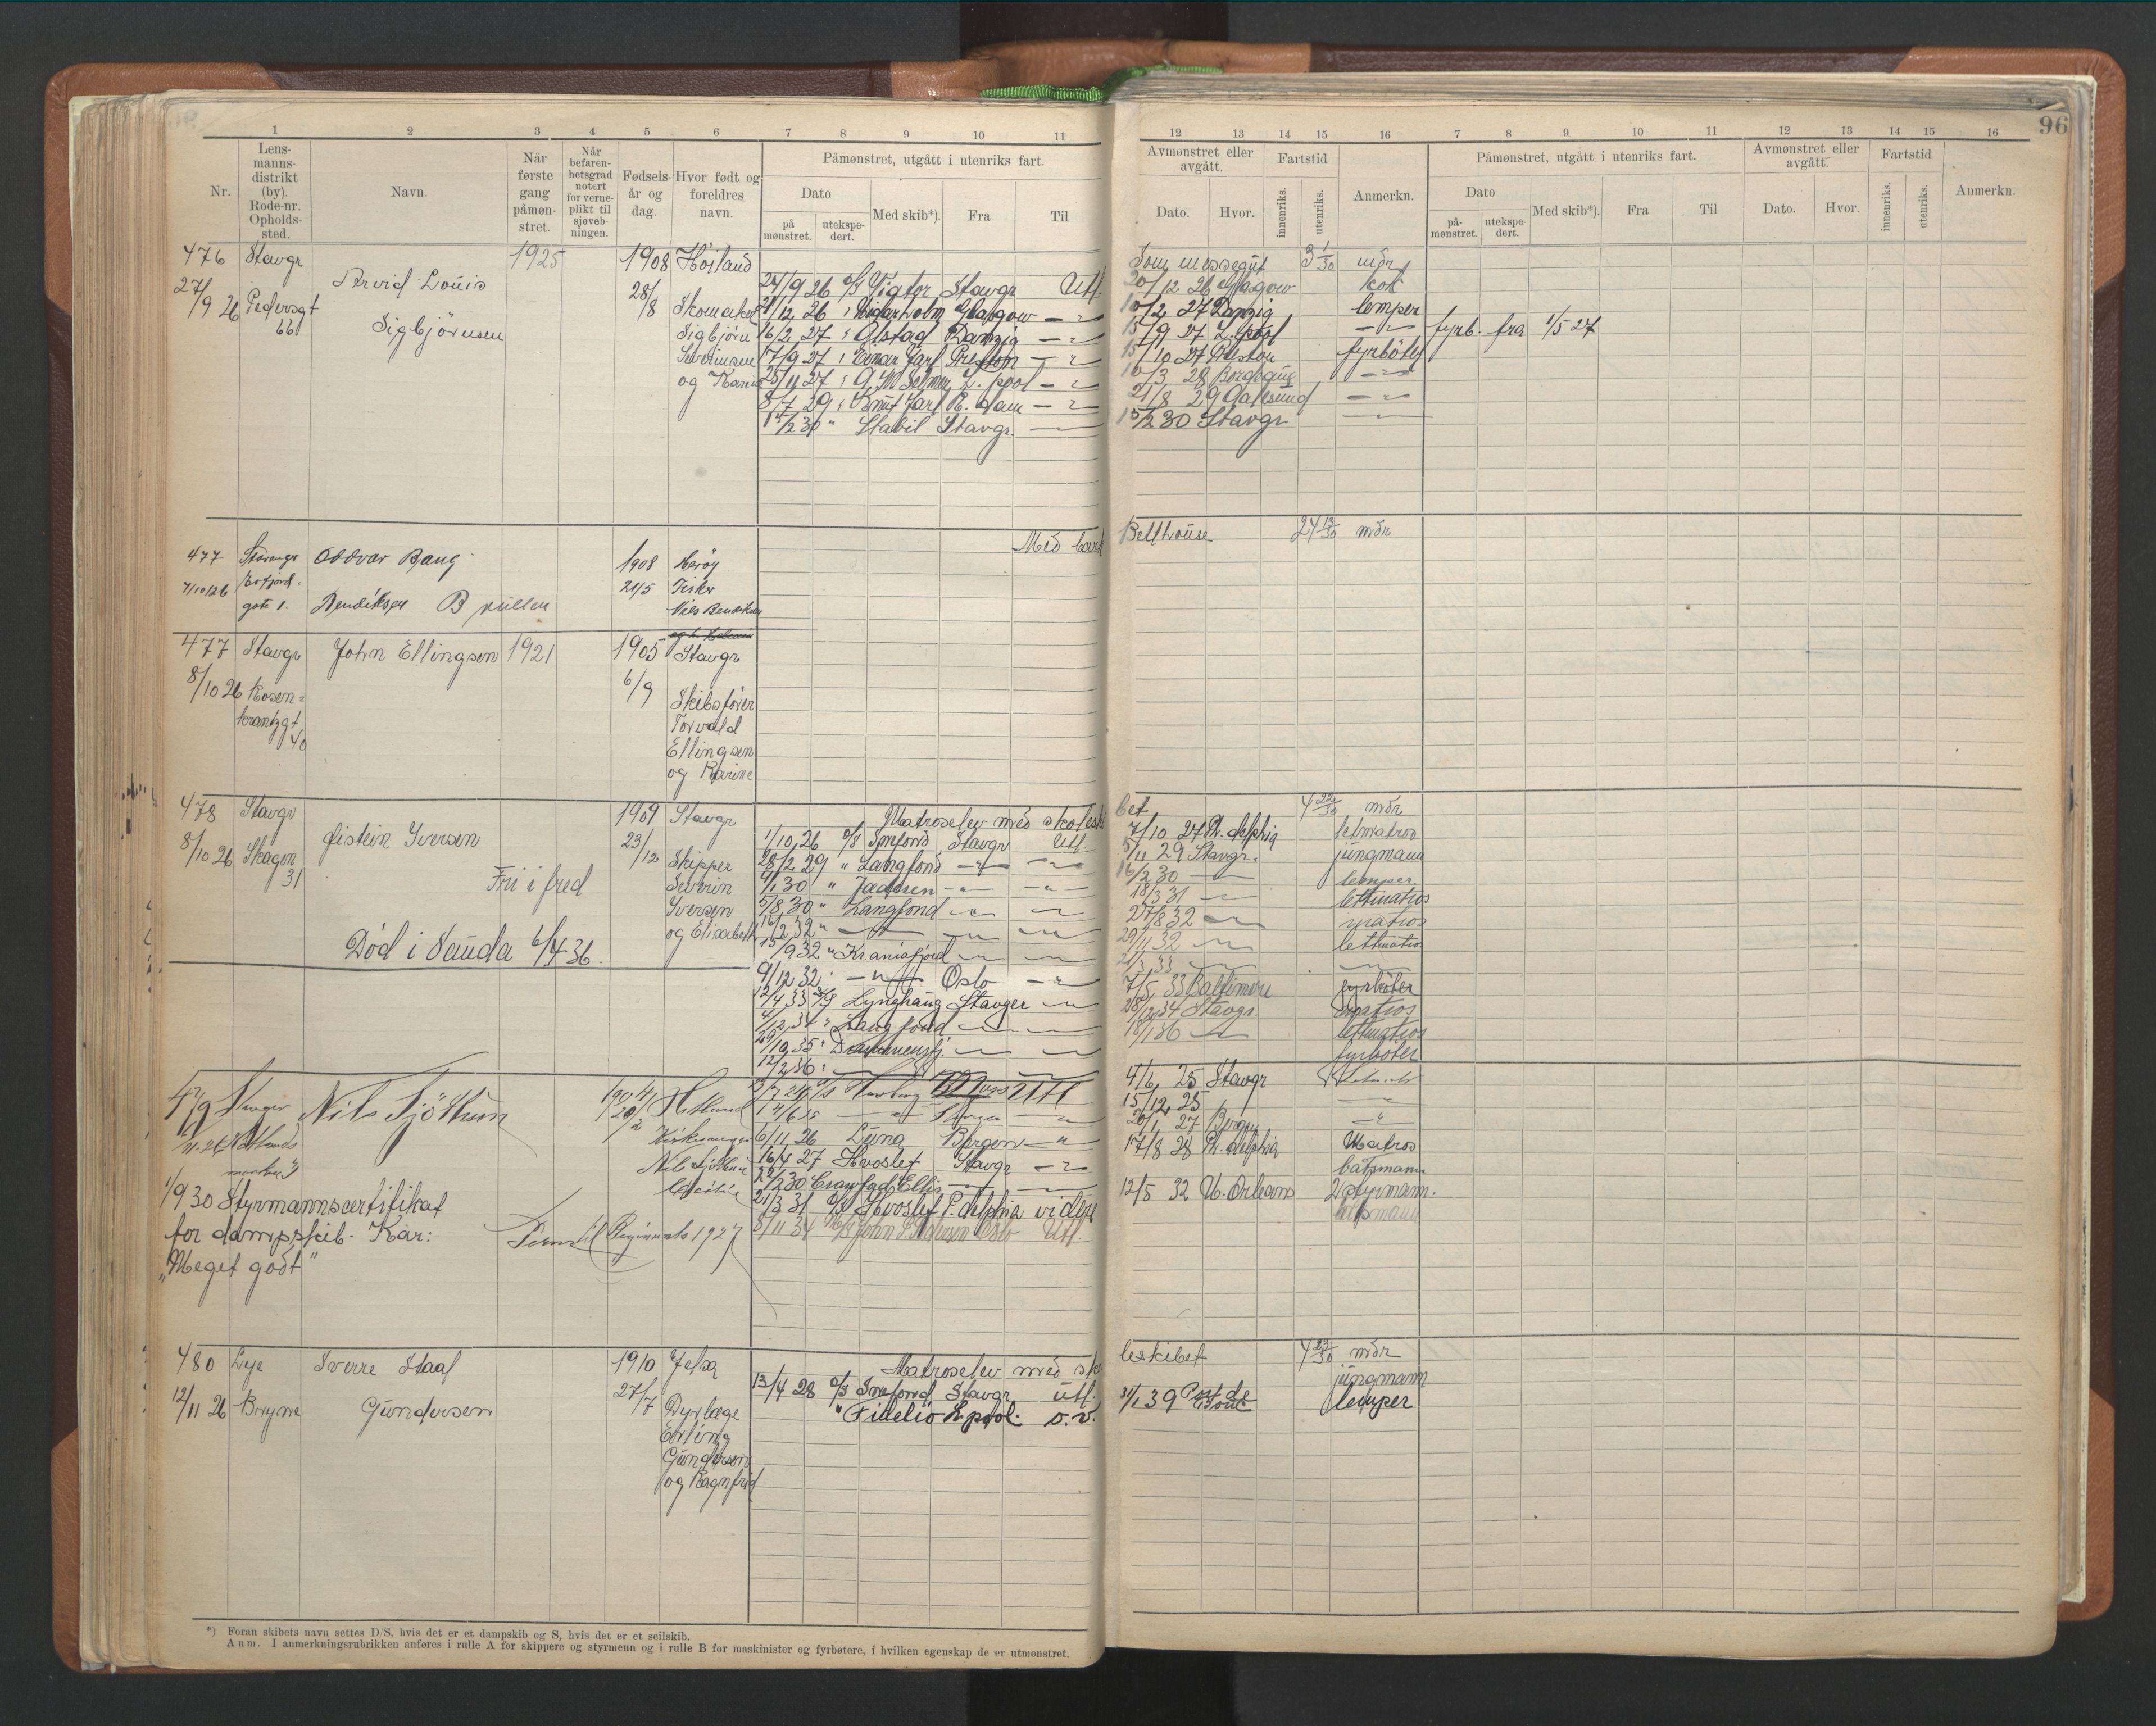 96
1 2 3 4 5 6 7 8 9 10 11
12 13 14 15 16 7 8 9 10 11 12 13 14 15 16
Nr.
Lens-
manns-
distrikt
(by).
Rode-nr.
Opholds-
sted.
Navn.
Når
første
gang
påmøn-
stret.
Når
befaren-
hetsgrad
notert
for verne-
plikt til
sjøveb-
ningen.
Fødsels-
år og
dag.
Hvor født og
foreldres
navn.
Påmønstret, utgått i utenriks fart.
Dato
på
mønstret.
utekspe-
dert.
Med skib*).
Fra
Til
Avmønstret eller
avgått.
Dato.
Hvor.
Fartstid
innenriks.
utenriks.
Anmerkn.
Påmønstret, utgått i utenriks fart.
Dato
på-
mønstret.
utekspe-
dert.
Med skib*).
Fra
Til
Avmønstret eller
avgått.
Dato.
Hvor.
Fartstid
innenriks.
utenriks.
Anmerkn.
476 Stavgr 1925 1908 Høiland
27/9 26 Pedersgt 66
Louis
Sigbjörnsen
28/8
Skomaker
Sigbjörn
Severinsen
og Karin
24/9 26 D/S Vigtor Stavgr Utl.
21/12 26 " Glasgow — " —
16/2 27 " Alstad Danzig — " —
17/9 27 " Einar Jarl Preston — " —
25/11 27 " A. M Selmer L. pool — " —
8/7 29 " Knut Jarl R. dam — " —
15/2 30 " Stabil Stavgr. —
Som messegut 3 1/30 mdr
20/12 26 Glasgow kok
10/2 27 Danzig lemper
15/9 27 L. pool — " — fyrb. fra 1/5 27
15/10 27 Preston fyrböter
10/3 28 — " —
21/8 29 Aalesund — " —
15/2 30 Stavgr —
Med bark
Bellhouse 24 13/30 mdr
477 Stavanger Oddvar Bang 1908 Herøy
7/10/26 Erfjord-
gate 1. Bendiksen B rullen 21/5 Fisker
Nils Bendiksen
477 Stavgr John Ellingsen 1921 1905 Stavgr
8/10 26 Rosen-
krantzgt
40
6/9
Skibsfører
Torvald
Ellingsen
og Karine
478 Stavgr 1909 Stavgr
8/10 26 Skagen
31
Øistein Iversen
23/12 Skipper
Severin
Iversen
og Elisabeth
Fri i fred
Død i Sauda 6/4-36.
Matroselev med skoleski
bet 4 22/30 mdr
1/10,26 D/S Snefond Stavgr Utl.
28/2 29 " Langfond — " —
9/1 30 " Jaederen — " — — " —
5/8,30 " Langfond — " —
16/2,32 " — " —
15/9 32 " Kraniafjord — " —
9/12 32 " — " — Oslo — " —
12/4 33 D/S Lynghaug Stavger — " —
4/12,34 " Langfond — " —
29/10,35 " Drammensfj. — " —
12/2,36 "
7/10 27 Ph. delphia letmatros
5/11 29 Stavgr. jungmann
16/2 30 — lemper.
18/3 31 — lettmatros
27/8 32 — " — matros
29/11 32 — " — lettmatros
21/3 33 — " —
7/5, 33 Baltimore fyrböter
28/12,34 Stavgr. matros
18/1 36 — " — lettmatros
fyrböter
479 Stavgr Nils Tjöttum Hetland
Nils Tjöttum
1/9 30 Styrmannscertifikat
for dampskib. Kar:
"Meget godt"
6/11 26 Luna Bergen — " —
16/4 27 Hvoslef Stavgr — " —
22/2 30 Crawfad Ellis —
21/3 31 D/S Hvoslef P. delphia videre
5/11 34 M/S John P. Pedersen Oslo Utl.
4/6, 25 Stavgr
15/12,25 — " —
20/1, 27 Bergen — " —
17/8 28 Ph. delphia Matros
båtsmann
12/5 32 N. Orleans 2styrmann.
480 Lye Sverre Staal 1910 Jelsa
12/11 26 Bryne Gundersen 27/7 Dyrlæge
Erling
Gundersen
og Ragnfrid
Matroselev med sko
leskibet 4 23/30 mdr
13/4 28 D/S Snefond Stavgr Utl. jungmann
" Fidelio L.pool. o.v. 31/1 39 Port de Bouc lemper
*) Foran skibets navn settes D/S, hvis det er et dampskib og S, hvis det er et seilskib.
Anm. I anmerkningsrubrikken anføres i rulle A for skippere og styrmenn og i rulle B for maskinister og fyrbøtere, i hvilken egenskap de er utmønstret.